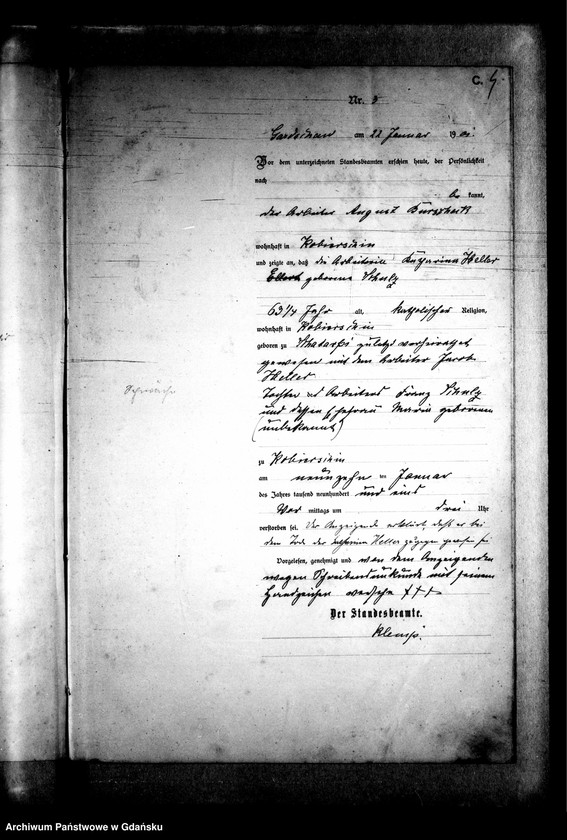 C.
Nr. 3
am 22 Januar 1901
Vor dem unterzeichneten Standesbeamten erschien heute, der Persönlichkeit
nach
be kannt,
der Arbeiter August
wohnhaft in Kobierschin
und zeigte an, daß die Katharina Heller
geborene Schulz
63 1/4 Jahr alt, katholischer Religion,
wohnhaft in Kobierschin
geboren zu zuletzt verheirathet
gewesen mit dem Arbeiter Jacob
Heller
Tochter des Arbeiters Franz Schulz
und dessen Ehefrau Maria geborenen
(unbekannt)
Schwäche
zu Kobierschin
am neunzehn ten Januar
des Jahres tausend neunhundert und eins
Vor mittags um drei Uhr
verstorben sei. Der Anzeigende erklärt, daß er bei
dem Tode der Katharina Heller zugegen gewesen sei
Vorgelesen, genehmigt und von dem Anzeigenden
wegen Schreibensunkunde mit seinem
Handzeichen versehn +++
Der Standesbeamte.
Archiwum Państwowe w Gdańsku